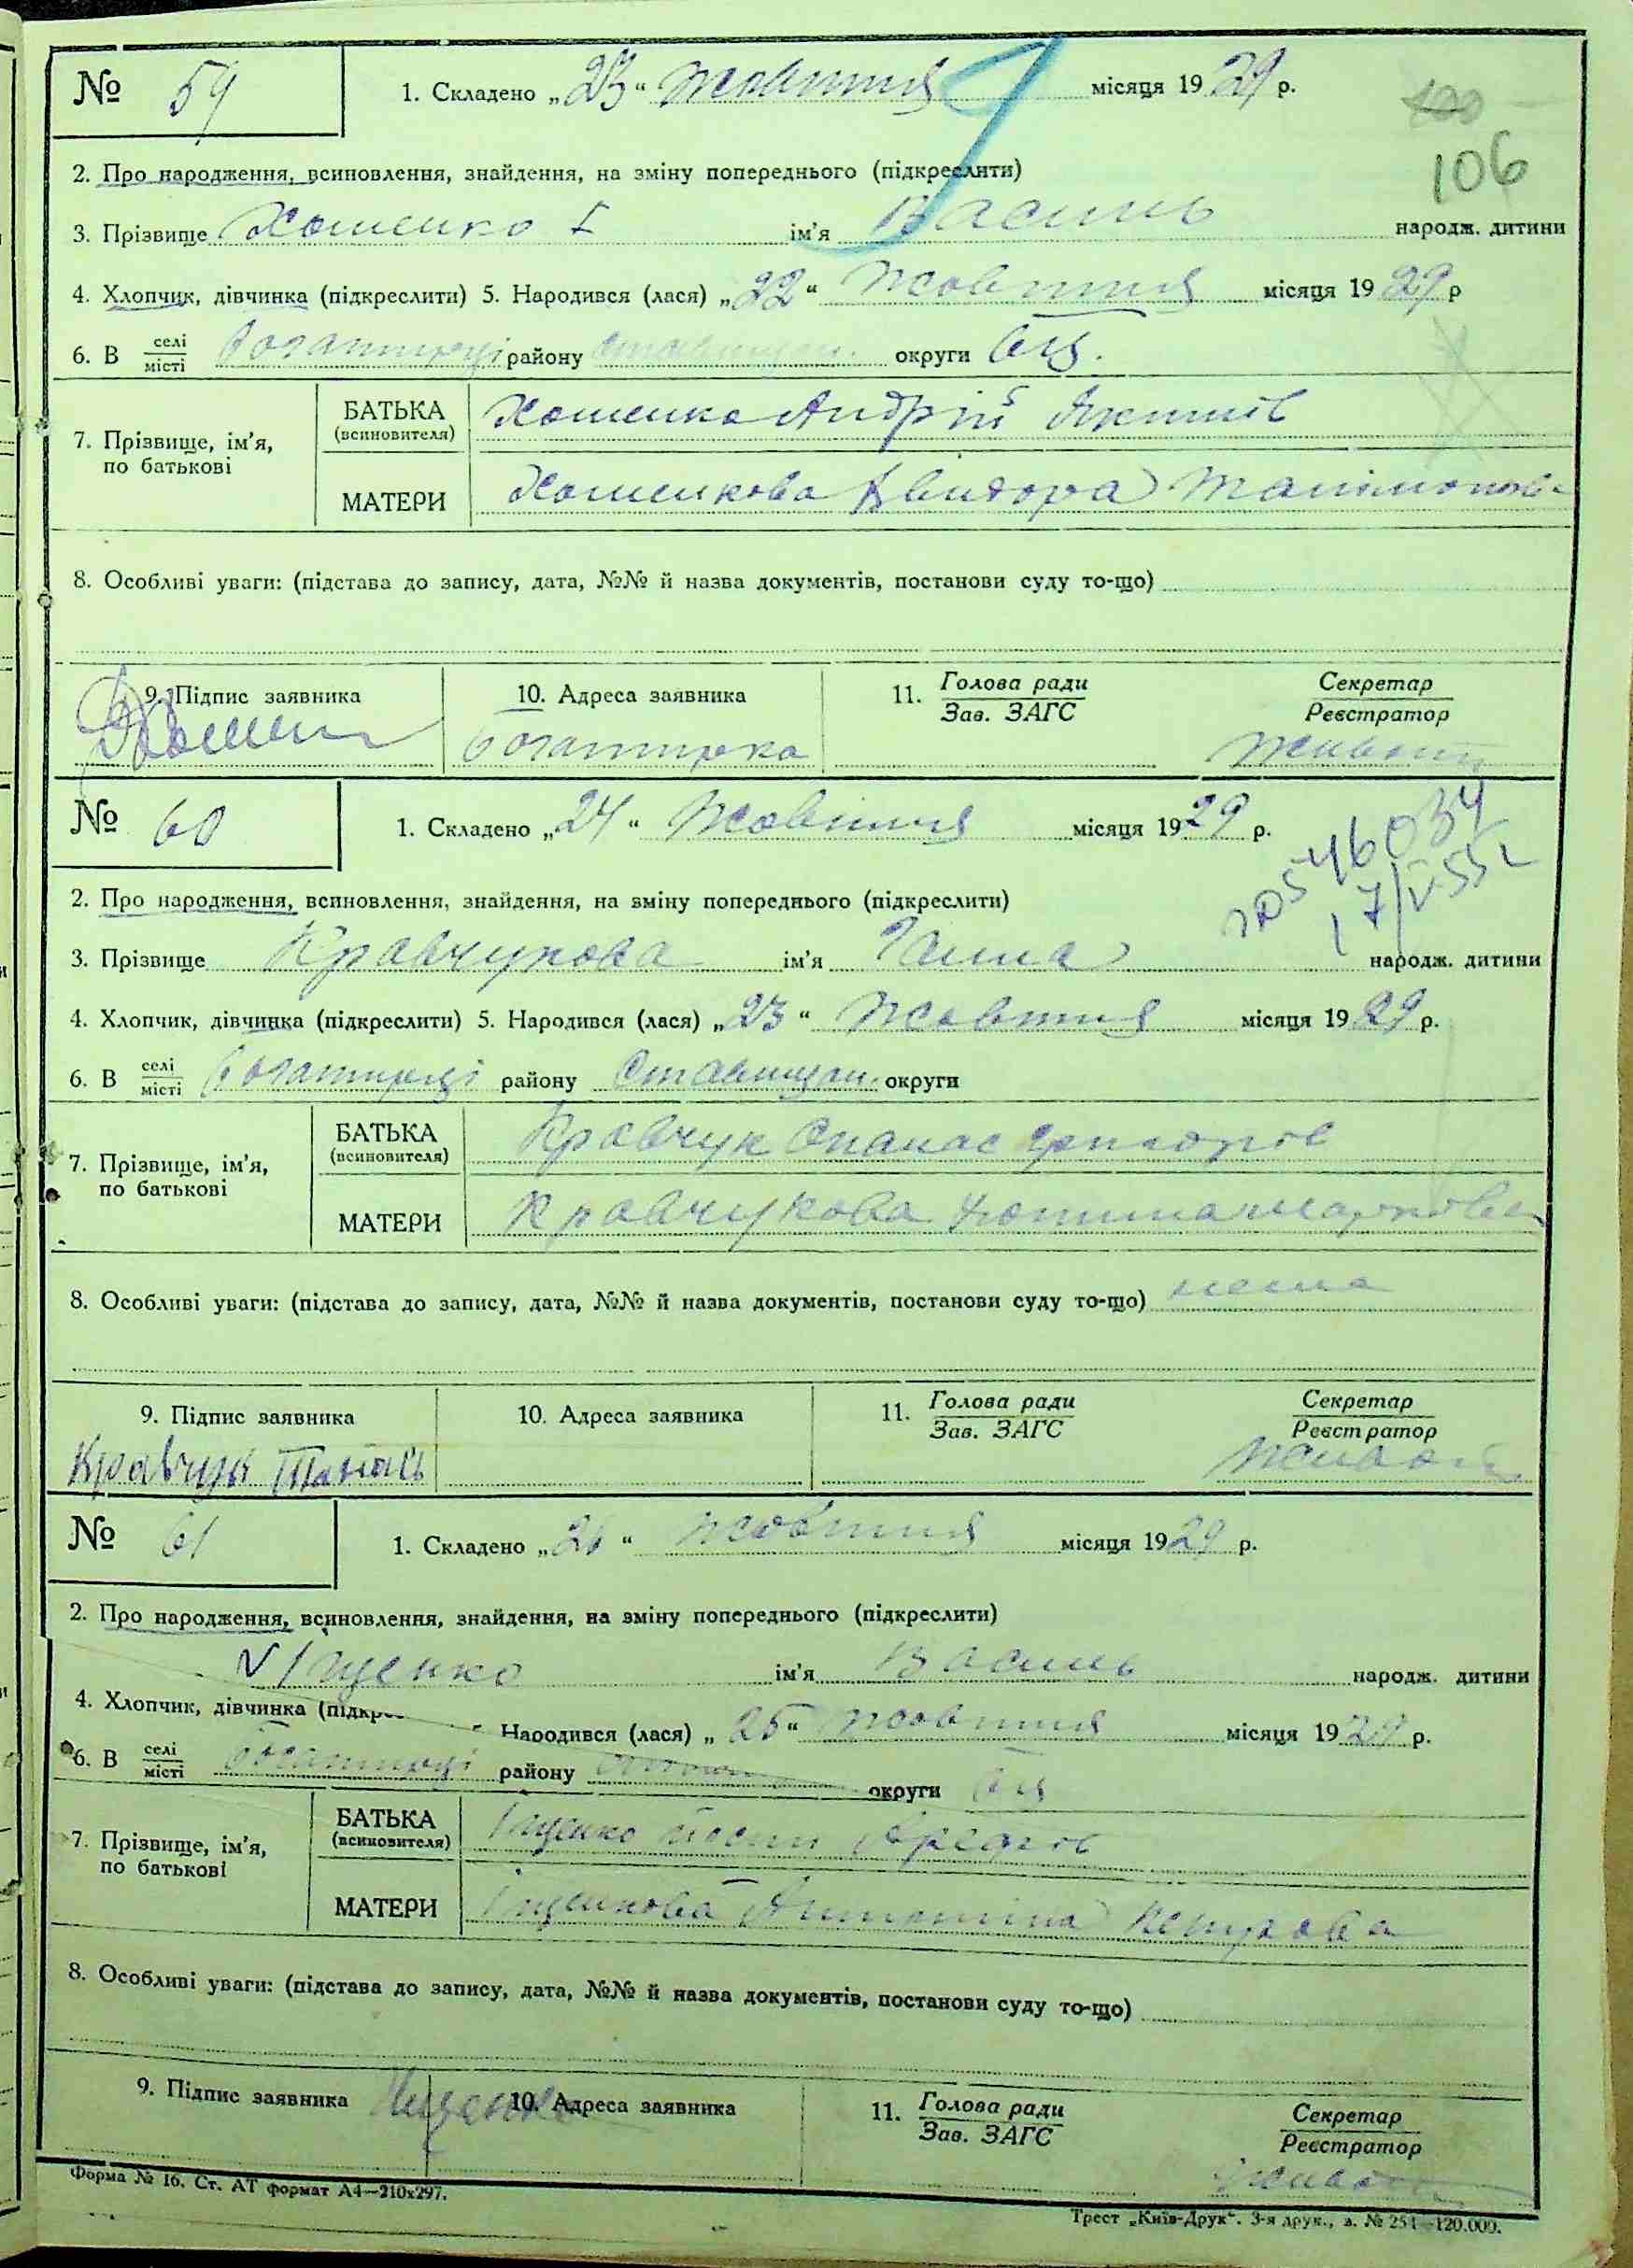 № 59 1. Складено „23" Жовтня місяця 1929 р.
106
2. Про народження, всиновлення, знайдення, на зміну попереднього (підкреслити)
3. Прізвище Хоменко ім'я Василь народж. дитини
4. Хлопчик, дівчинка (підкреслити) 5. Народився (лася) „22" Жовтня місяця 1929 р
6. В селі/місті Богатирці району Ставищан. округи БЦ.
7. Прізвище, ім'я, по батькові
БАТЬКА (всиновителя) Хоменко Андрій
МАТЕРИ Хоменкова
8. Особливі уваги: (підстава до запису, дата, №№ й назва документів, постанови суду то-що)
9. Підпис заявника 10. Адреса заявника 11. Голова ради/Зав. ЗАГС Секретар/Реєстратор
Богатирка
№ 60 1. Складено „24" Жовтня місяця 1929 р.
2. Про народження, всиновлення, знайдення, на зміну попереднього (підкреслити)
3. Прізвище Кравчукова ім'я Ганна народж. дитини
4. Хлопчик, дівчинка (підкреслити) 5. Народився (лася) „23" Жовтня місяця 1929 р.
6. В селі/місті Богатирці району Ставищан. округи
7. Прізвище, ім'я, по батькові
БАТЬКА (всиновителя) Кравчук Опанас Григоров
МАТЕРИ Кравчукова
8. Особливі уваги: (підстава до запису, дата, №№ й назва документів, постанови суду то-що) нема
9. Підпис заявника 10. Адреса заявника 11. Голова ради/Зав. ЗАГС Секретар/Реєстратор
Кравчук
№ 61 1. Складено „26" Жовтня місяця 1929 р.
2. Про народження, всиновлення, знайдення, на зміну попереднього (підкреслити)
Іщенко ім'я Василь народж. дитини
4. Хлопчик, дівчинка (підкр Народився (лася) „25" Жовтня місяця 1929 р.
6. В селі/місті Богатирці району округи БЦ
7. Прізвище, ім'я, по батькові
БАТЬКА (всиновителя) Іщенко
МАТЕРИ Іщенкова
8. Особливі уваги: (підстава до запису, дата, №№ й назва документів, постанови суду то-що)
9. Підпис заявника Іщенко 10. Адреса заявника 11. Голова ради/Зав. ЗАГС Секретар/Реєстратор
Форма № 16. Ст. АТ формат А4—210х297.
Трест „Київ-Друк". 3-я друк., з. № 251—120.000.